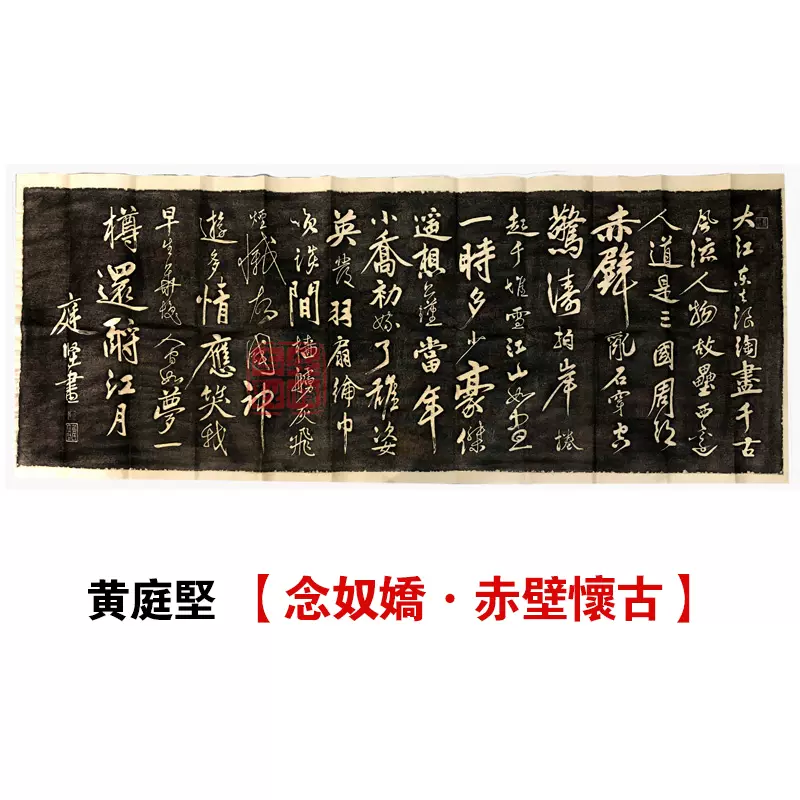 大江東去浪淘盡千古
風流人物故壘西邊
人道是三國周郎
赤壁亂石穿空
驚濤拍岸捲
起千堆雪江山如畫
一時多少豪傑
遙想公瑾當年
小喬初嫁了雄姿
英發羽扇綸巾
笑談間檣艣灰飛
煙滅故國神
遊多情應笑我
早生華髮人間如夢一
樽還酹江月
庭堅書
黄庭堅【念奴嬌・赤壁懷古】